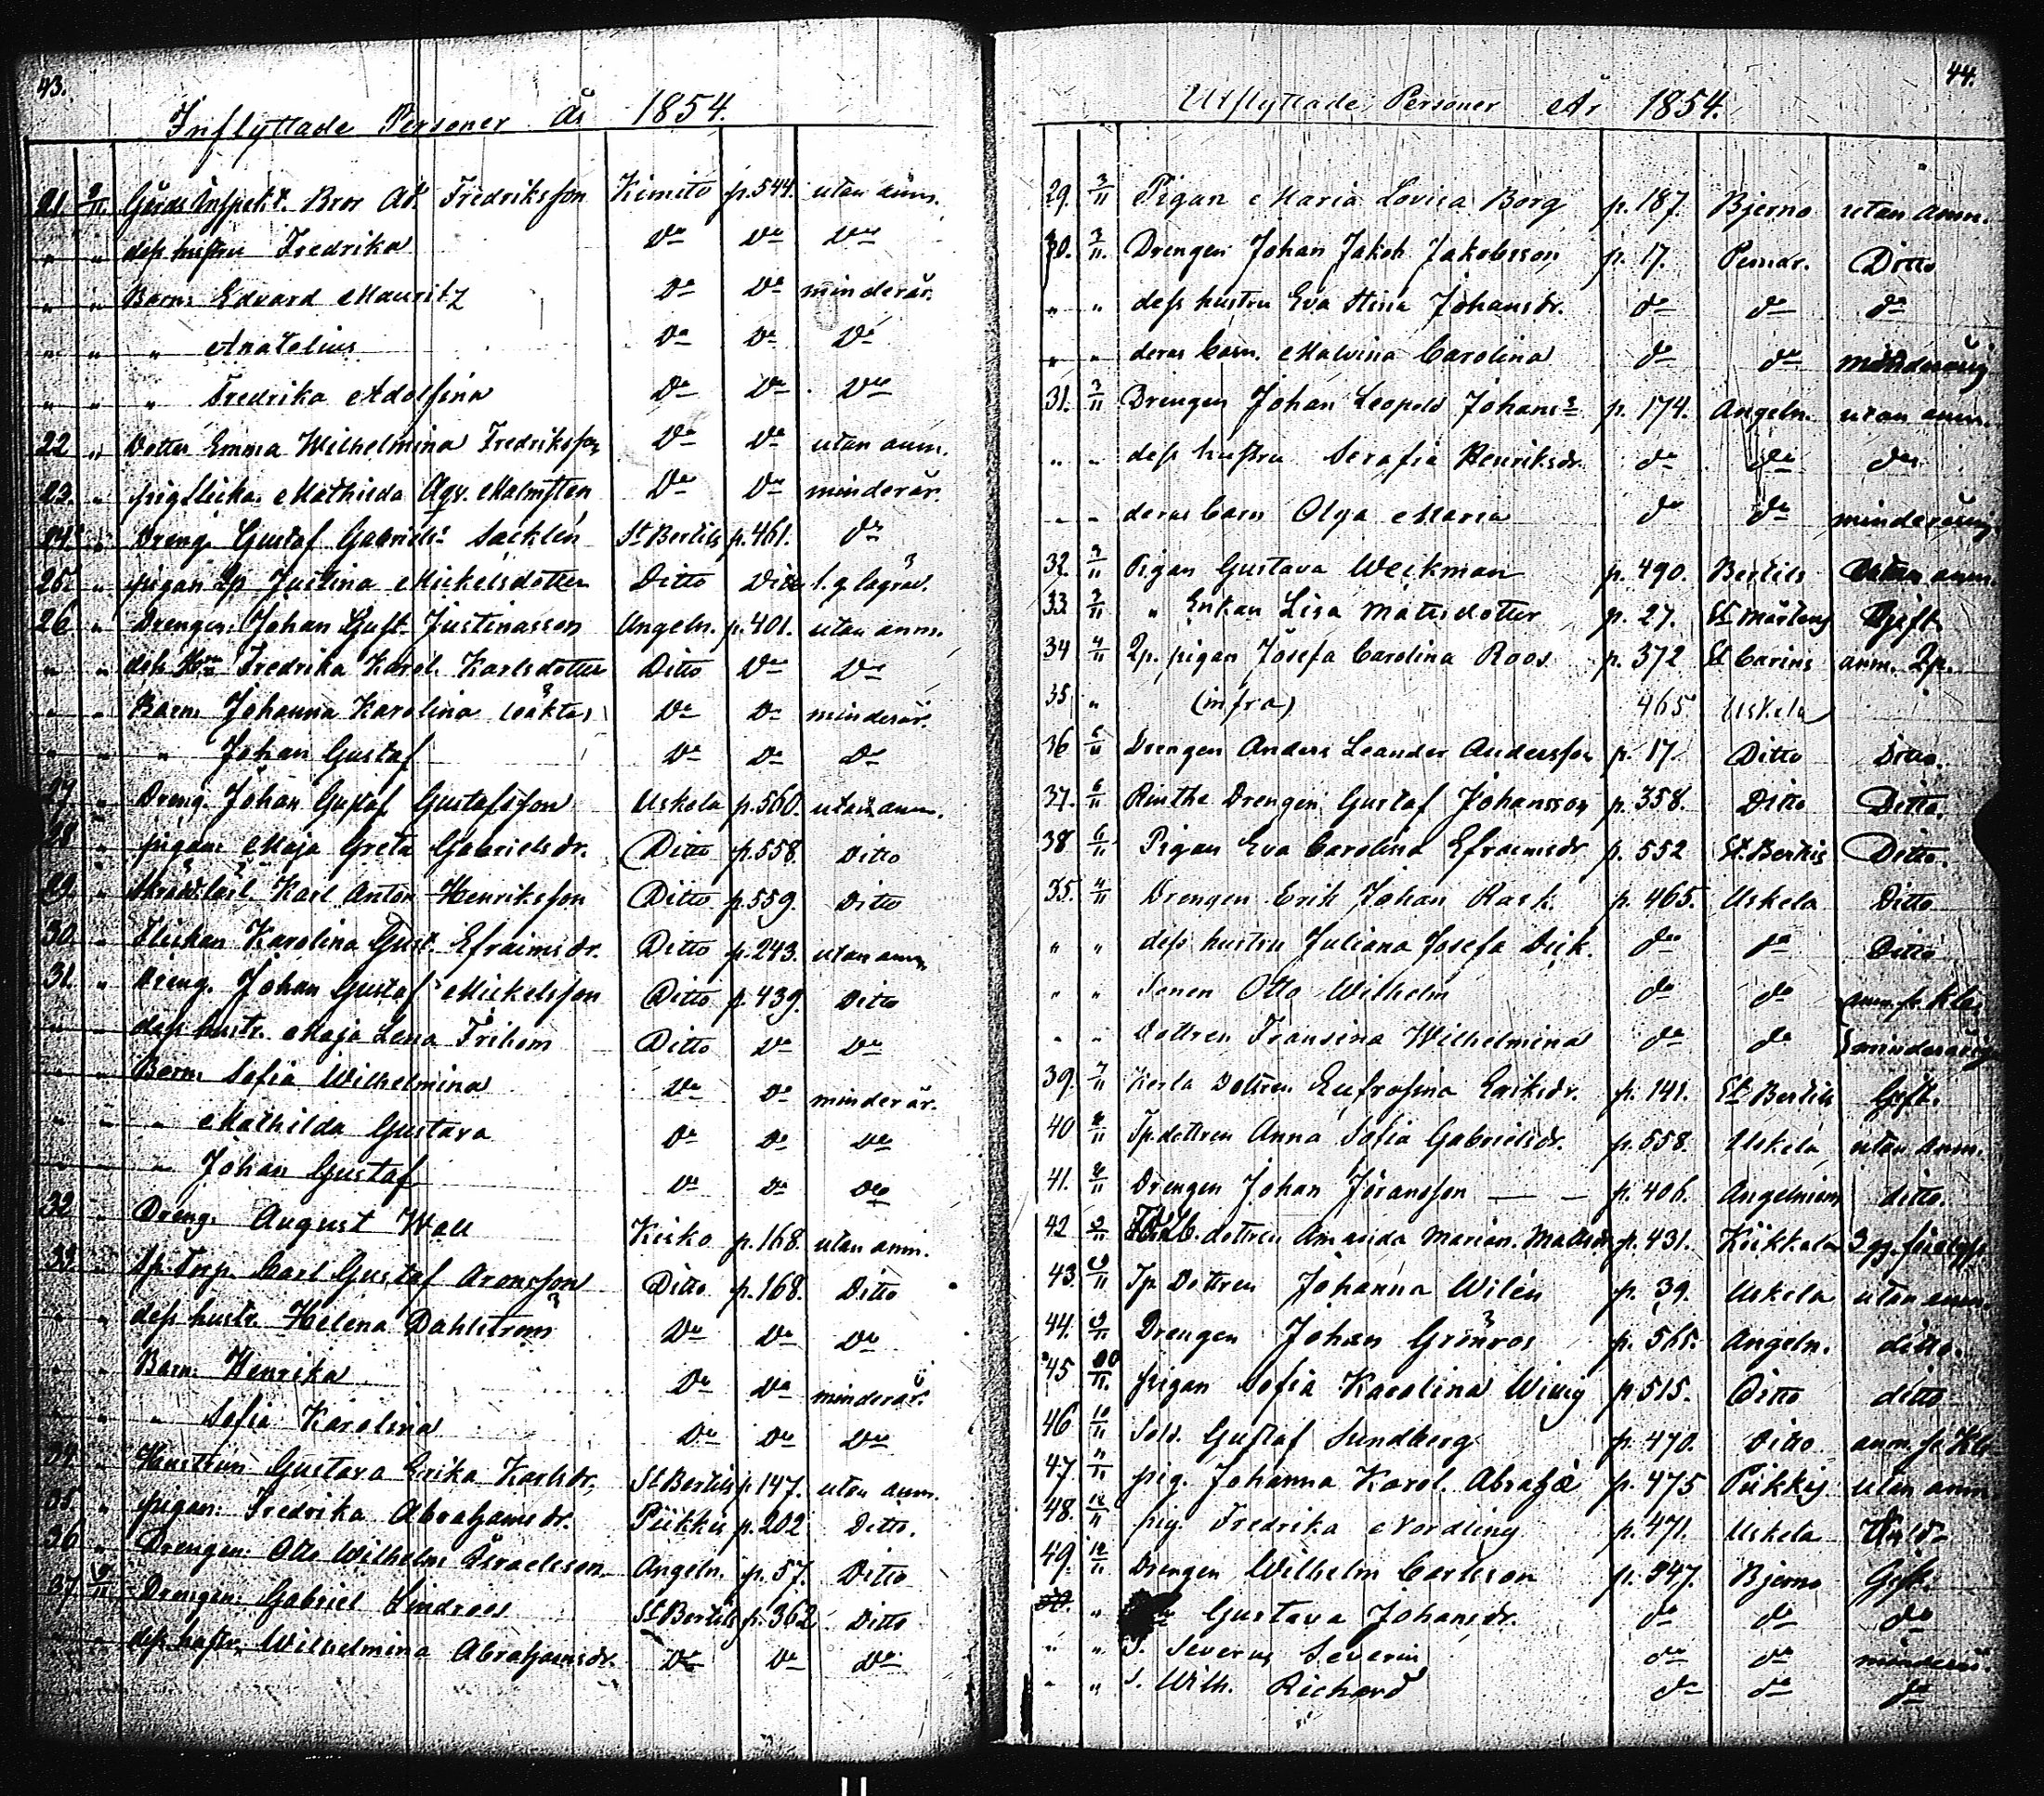 43.
Inflyttade Personer År 1854.
21. 9/11 Gårds Inspekt. Bror Ad. Fredriksson Kimito p.544. utan anm.
" " dess hustru Fredrika Do Do Do
" " Barn: Edvard Mauritz Do Do minderår.
" " " Anatolius Do Do Do
" " " Fredrika Adolfina Do Do Do
22 " Dotter Emma Wilhelmina Fredriksson Do Do utan anm.
23. " Mathilda Malmsten Do Do minderår.
24. " Dreng. Gustaf Gabriels: St Bertils p.461. Do
25. " pigan Justina Mickelsdotter Ditto Do
26 " Drengen: Johan Gust. Justinasson Angeln. p.401. utan anm.
" " dess Fredrika Karol. Karlsdotter Ditto Do Do
" " Barn: Johanna Karolina Do Do minderår.
" " " Johan Gustaf Do Do Do
27 " Dreng. Johan Gustaf Gustafsson Uskela p.560. utan anm.
28 " pigan: Maja Greta Gabrielsdr. Ditto p.558. Ditto
29. " Karl Anton Henriksson Ditto p.559. Ditto
30. " Flickan Karolina Gust. Efraimsdr. Ditto p.243. utan anm.
31. " Dreng. Johan Gustaf Mickelsson Ditto p.439. Ditto
" " dess hustr. Maja Lena Ditto Do Do
" " Barn: Sofia Wilhelmina Do Do minderår.
" " " Mathilda Gustava Do Do Do
" " " Johan Gustaf Do Do Do
32 " Dreng: August Wall Kisko p.168. utan anm.
33. " Carl Gustaf Aronsson Ditto p.168. Ditto
" " dess hustr. Helena Dahlström Do Do Do
" " Barn: Henrika Do Do minderår.
" " " Sofia Karolina Do Do Do
34. " Hustrun Gustava Erika Karlsdr. St Bertils p.147. utan anm.
35. " pigan: Fredrika Abrahamsdr. Piikkis p.202 Ditto.
36 " Drengen: Otto Wilhelm Israelsson Angeln. p.57. Ditto
37 9/11 Drengen: Gabriel Lindroos St Bertils p.362 Ditto
" " dess hustr. Wilhelmina Abrahamsdr. Do Do Do
44.
Utflyttade Personer År 1854.
29. 3/11 Pigan Maria Lovisa Borg p.187. Bjerno utan anm.
30. 3/11. Drengen Johan Jakob Jakobsson p. 17. Pemar. Ditto
" " dess hustru Eva Stina Johansdr. do do do
" " deras barn. Malvina Carolina do do minderårig
31. 3/11 Drengen Johan Leopold Johans: p. 174. Angeln. utan anm.
" " dess hustru Serafia Henriksdr. do do do
" " deras barn Olga Maria do do minderårig
32. 3/11 Pigan Gustava Weckman p. 490. Bertils utan anm.
33. 3/11 " Enkan Lisa Matsdotter p. 27. St Mårtens Gift.
34 4/11 pigan Josefa Carolina Roos p. 372 St Carins
35 " (infra) 465 Uskela
36 6/11 Drengen Anders Leander Andersson p. 17. Ditto Ditto.
37. 6/11 Drengen Gustaf Johansson p. 358. Ditto Ditto.
38 6/11 Pigan Eva Carolina Efraimsdr p. 552 St. Bertils Ditto.
35. 4/11 Drengen Erik Johan Rask. p. 465. Uskela Ditto
" " dess hustru Juliana Josefa do do Ditto
" " Sonen Otto Wilhelm do do
" " Dottren Fransina Wilhelmina do do minderårig
39. 7/11 Dottren Eufrosina Eriksdr. p. 141. St Bertils Gift.
40 8/11 dottren Anna Sofia Gabrielsdr. p.558. Uskela utan anm.
41. 8/11 Drengen Johan Göransson — — p. 406. Angelniemi ditto.
42 9/11 dottren Amanda Marian. Matsdr p.431. Kiikkala
43. 9/11 Dottren Johanna Wilén p. 39. Uskela utan anm.
44. 9/11 Drengen Johan Grönroos p. 565. Angeln. ditto.
45 10/11. pigan Sofia Karolina p.515. Ditto ditto
46 10/11 Sold. Gustaf Sundberg p.470. Ditto
47 11/11 pig. Johanna Karol. p. 475 Piikkis utan anm.
48. 12/11 pig. Fredrika Nordling p.471. Uskela
49. 12/11 Drengen Wilhelm Carlsson p. 347. Bjerno Gift.
" Gustava Johansdr. do do do
" " S. Severus Severin do do minderår.
" " S. Wilh. Richard do do do